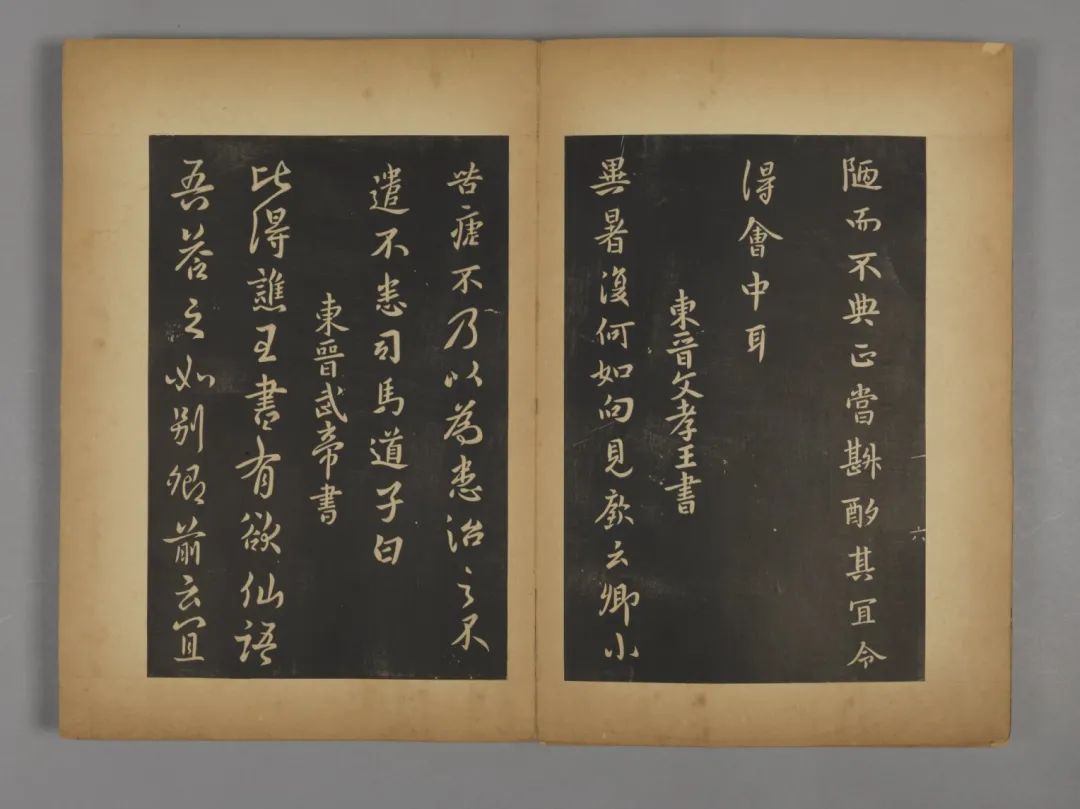 陋而不典正當斟酌其宜令
六
得會中耳
東晉文孝王書
異暑復何如向見歆云卿小
苦瘧不乃以為患治之不
遣不恙司馬道子白
東晉武帝書
比得譙王書有欲仙語
吾答之如別卿前云宜